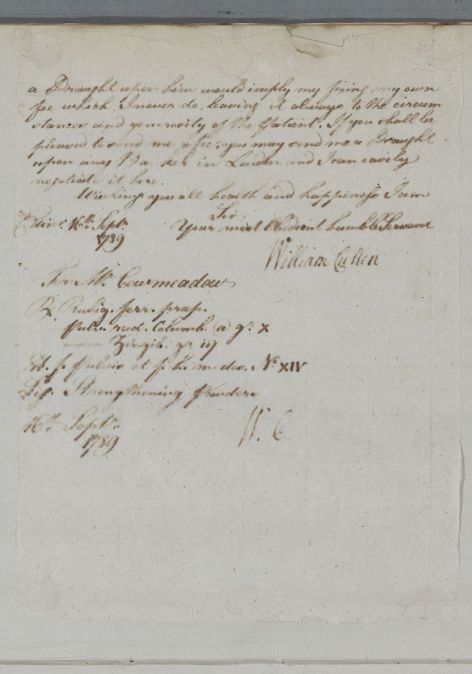 a Draught upon him would imply my fixing my own
fee which I never do, leaving it always to the circum
stances and generosity of the Patient. If you shall be
pleased to send me a fee, you may send me a Draught
upon any Banker in London and I can easily
negotiate it here.
Wishing you all health and happiness I am
Sir
Edinr. 16th Septr. Your most Obedient humble Servant
1789
William Cullen
For Mr. Cowmeadow
Rx Rubig. ferr. prap.
Pulv. rad. Columb. a gr. X
Zingib. gr iij
M. f. Pulvis et f. h. m. dos. No. XIV
Sig. Strengthening Powders
16th Septr.
1789 W. C